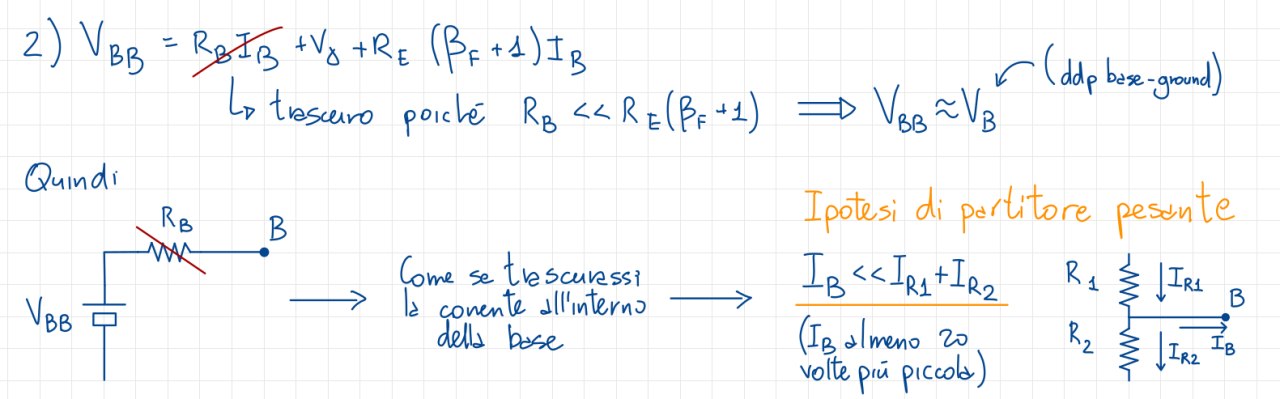 2) V_BB = R_B I_B + V_γ + R_E (β_F + 1) I_B
(ddp base-ground)
↳ trascuro poiché R_B << R_E (β_F + 1) ⟹ V_BB ≈ V_B
Quindi
R_B
B
V_BB
Come se trascurassi
la corrente all'interno
della base
Ipotesi di partitore pesante
I_B << I_R1 + I_R2
(I_B almeno 20
volte più piccola)
R_1
I_R1
B
R_2
I_R2
I_B